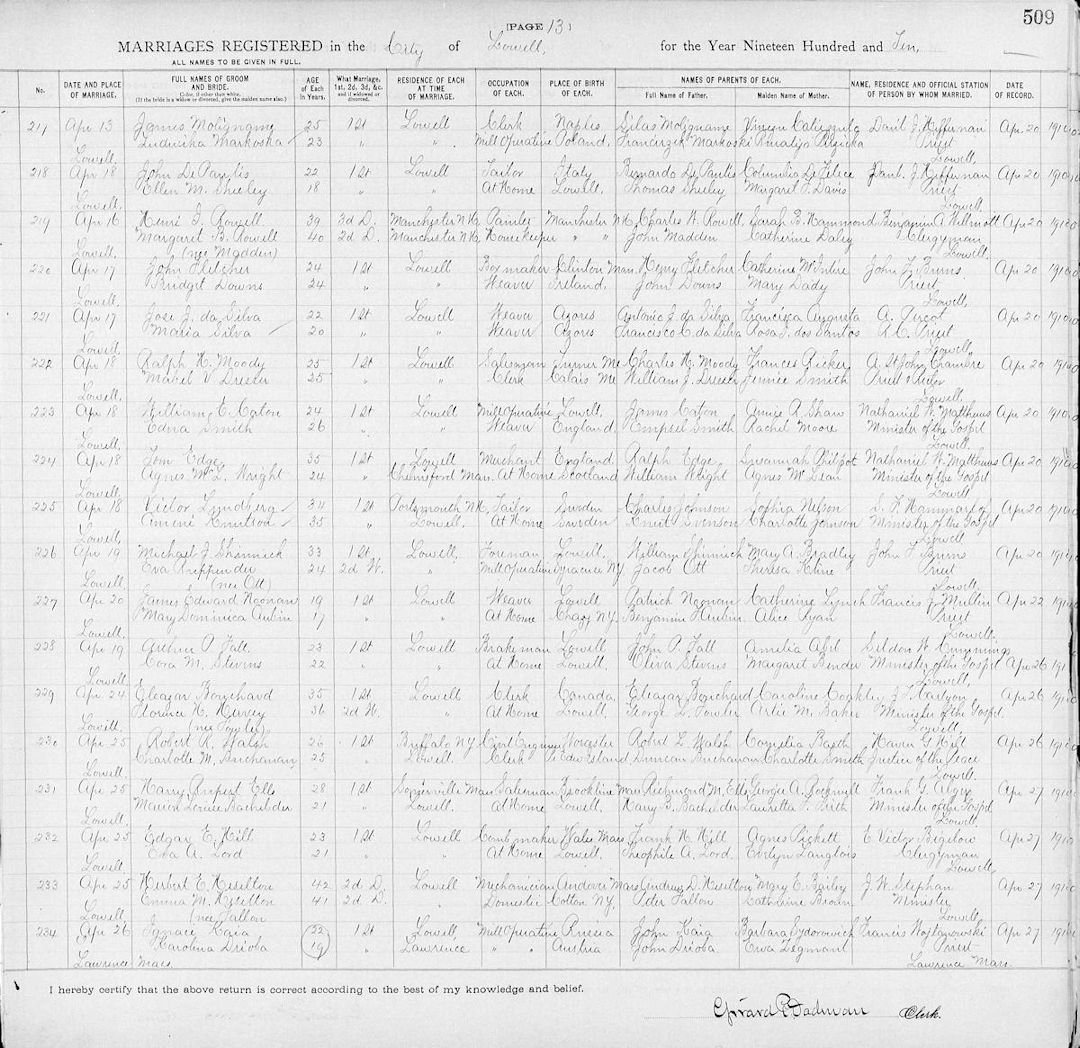 509
[PAGE 13]
MARRIAGES REGISTERED in the City of Lowell, for the Year Nineteen Hundred and Ten,
ALL NAMES TO BE GIVEN IN FULL.
No. DATE AND PLACE OF MARRIAGE. FULL NAMES OF GROOM AND BRIDE. Color, if other than white. (If the bride is a widow or divorced, give the maiden name also.) AGE of Each in Years. What Marriage, 1st, 2d, 3d, &c. and if widowed or divorced. RESIDENCE OF EACH AT TIME OF MARRIAGE. OCCUPATION OF EACH. PLACE OF BIRTH OF EACH. NAMES OF PARENTS OF EACH. Full Name of Father. Maiden Name of Mother. NAME, RESIDENCE AND OFFICIAL STATION OF PERSON BY WHOM MARRIED. DATE OF RECORD.
217 Apr 13 James Molignamy 25 1st Lowell Clerk Naples Silas Moligname J. Heffernan Apr 20 1910
Ludwika Markoska 23 " " Mill Operative Poland, Markoski Priest
Lowell, Lowell,
218 Apr 18 John De Paulis 22 1st Lowell Tailor Italy Bernardo De Paulis Columbia De Felice J. Heffernan Apr 20 1910
Ellen M. Sheeley 18 " " At Home Lowell, Thomas Sheeley Margaret T. Davis Priest
Lowell, Lowell
219 Apr 16 Rowell 39 3d D. Manchester N.H. Manchester N.H. Charles W. Rowell Sarah B. Hammond Benjamin A. Willmott Apr 20 1910
Margaret B. Rowell 40 2d D. Manchester N.H. Housekeeper " " John Madden Catherine Daley Clergyman
Lowell, (nee Madden) Lowell,
220 Apr 17 John Fletcher 24 1st Lowell Boxmaker Clinton Mass. Henry Fletcher Catherine McIntire John F. Burns Apr 20 1910
Bridget Downs 24 " " Weaver Ireland, John Downs Mary Dady Priest
Lowell, Lowell,
221 Apr 17 Jose J. da Silva 22 1st Lowell Weaver Azores Antonio J. da Silva Francisca Augusta A. Apr 20 1910
Maria Silva 20 " " Weaver Azores Francisco C. da Silva Rosa J. dos Santos R.C. Priest
Lowell, Lowell,
222 Apr 18 Ralph H. Moody 25 1st Lowell Salesman Turner Me Charles H. Moody Frances Ricker A. St John Chambre Apr 20 1910
Mabel V. Dresser 25 " " Clerk Calais Me William J. Dresser Jennie Smith Priest & Rector
Lowell, Lowell,
223 Apr 18 William E. Caton 24 1st Lowell Mill Operative Lowell, James Caton Annie R. Shaw Nathaniel W. Matthews Apr 20 1910
Edna Smith 26 " " Weaver England Smith Rachel Moore Minister of the Gospel
Lowell, Lowell
224 Apr 18 Tom Edge 35 1st Lowell Merchant England Ralph Edge Susannah Philpot Nathaniel W. Matthews Apr 20 1910
Agnes McL. Wright 24 " Chelmsford Mass. At Home Scotland William Wright Agnes McLean Minister of the Gospel
Lowell, Lowell
225 Apr 18 Victor Lyndberg 34 1st Portsmouth N.H. Tailor Sweden Charles Johnson Sophia Nelson Apr 20 1910
Knutson 35 " Lowell, At Home Sweden Knut Svenson Charlotte Jonson Minister of the Gospel
Lowell, Lowell
226 Apr 19 Michael J. Shinnick 33 1st Lowell, Foreman Lowell, William Shinnick Mary A. Bradley John F. Burns Apr 20 1910
Eva 24 2d W. " Mill Operative Syracuse N.Y. Jacob Ott Theresa Kline Priest
Lowell, (nee Ott) Lowell,
227 Apr 20 James Edward Noonan 19 1st Lowell Weaver Lowell Patrick Noonan Catherine Lynch Francis J. Mullin Apr 22 1910
Mary Dominica Aubin 17 " " At Home Chazy N.Y. Benjamin Aubin Alice Ryan Priest
Lowell, Lowell.
228 Apr 19 Arthur P. Fall 23 1st Lowell Brakeman Lowell, John P. Fall Amelia Abel Seldon W. Cummings
Cora M. Stevens 22 " " At Home Lowell, Oliver Stevens Margaret Bender Minister of the Gospel Apr 26 1910
Lowell, Lowell,
229 Apr 24 Eleazar Bouchard 35 1st Lowell Clerk Canada, Eleazar Bouchard Caroline Coakley Apr 26 1910
Florence H. Hervey 36 2d W. " At Home Lowell, George D. Fowler Artie M. Baker Minister of the Gospel.
Lowell, (nee Fowler) Lowell,
230 Apr 25 Robert R. Walsh 26 1st Buffalo N.Y. Civil Engineer Worcester Robert L. Walsh Cornelia Hill Apr 26 1910
Charlotte M. Buchanan 25 " Lowell. Clerk Pr Edw Island Duncan Buchanan Charlotte Smith Justice of the Peace
Lowell. Lowell.
231 Apr 25 Harry Rupert Ells 28 1st Somerville Mass Salesman Brookline Mass Richmond M. Ells Georgie A. Rockwell Frank G. Alger Apr 27 1910
Marion Louise Bachelder 21 " Lowell. At Home Lowell, Harry B. Bachelder Lauretta F. Minister of the Gospel
Lowell. Lowell.
232 Apr 25 Edgar E. Hill 23 1st Lowell Comb maker Wales Mass Frank H. Hill Agnes Pickett E. Victor Bigelow Apr 27 1910
Eva A. Lord 21 " " At Home Lowell. Theophile A. Lord. Evelyn Langlois Clergyman
Lowell. Lowell,
233 Apr 25 Herbert E. Heselton 42 2d D. Lowell Mechanician Andover Mass Andrew D. Heselton Mary E. Bailey J. W. Stephan Apr 27 1910
Emma M. Heselton 41 2d D. " Domestic Colton N.Y. Peter Fallon Catherine Brown Minister
Lowell, (nee Fallon Lowell,
234 Apr 26 Ignace Kaia 22 1st Lowell, Mill Operative Russia John Kaia Barbara Sydorowich Francis Wojtanowski Apr 27 1910
Carolina Drioba 19 " Lawrence " " Austria John Drioba Ewa Legmant Priest
Lawrence Mass. Lawrence Mass.
I hereby certify that the above return is correct according to the best of my knowledge and belief.
Girard P. Dadman Clerk.